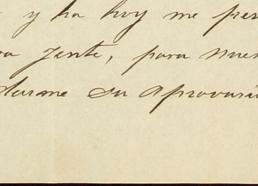 y ha hoy me per
Jente, para nues
darme su aprovaci